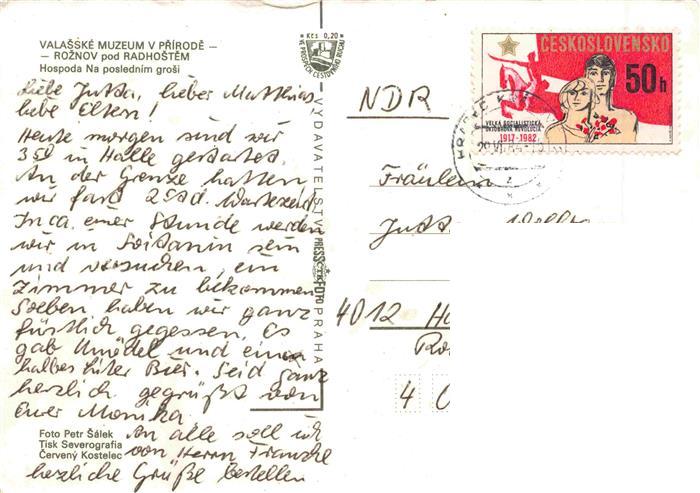 VALAŠSKÉ MUZEUM V PŘÍRODĚ –
– ROŽNOV pod RADHOŠTĚM
Hospoda Na posledním groši
Liebe Jutta, lieber Matthias,
liebe Eltern!
Heute morgen sind wir
3⁵⁰ in Halle gestartet.
An der Grenze hatten
wir fast 2 Std. Wartezeit
In ca. einer Stunde werden
wir in sein
und versuchen, ein
Zimmer zu bekommen
Soeben haben wir ganz
fürstlich gegessen. Es
gab Knödel und einen
halben Liter Bier. Seid ganz
herzlich gegrüßt von
Eurer Monika
An alle soll ich
von Herrn Francke
herzliche Grüße bestellen
Foto Petr Šálek
Tisk Severografia
Červený Kostelec
Kčs 0,20
VE PROSPĚCH CESTOVNÍHO RUCHU
VYDAVATELSTVÍ PRESSFOTO PRAHA
ČTK
ČESKOSLOVENSKO
50 h
VELKÁ SOCIALISTICKÁ
ŘÍJNOVÁ REVOLUCE
1917-1982
NDR
Fräulein
Jutta
4012 Ha
4